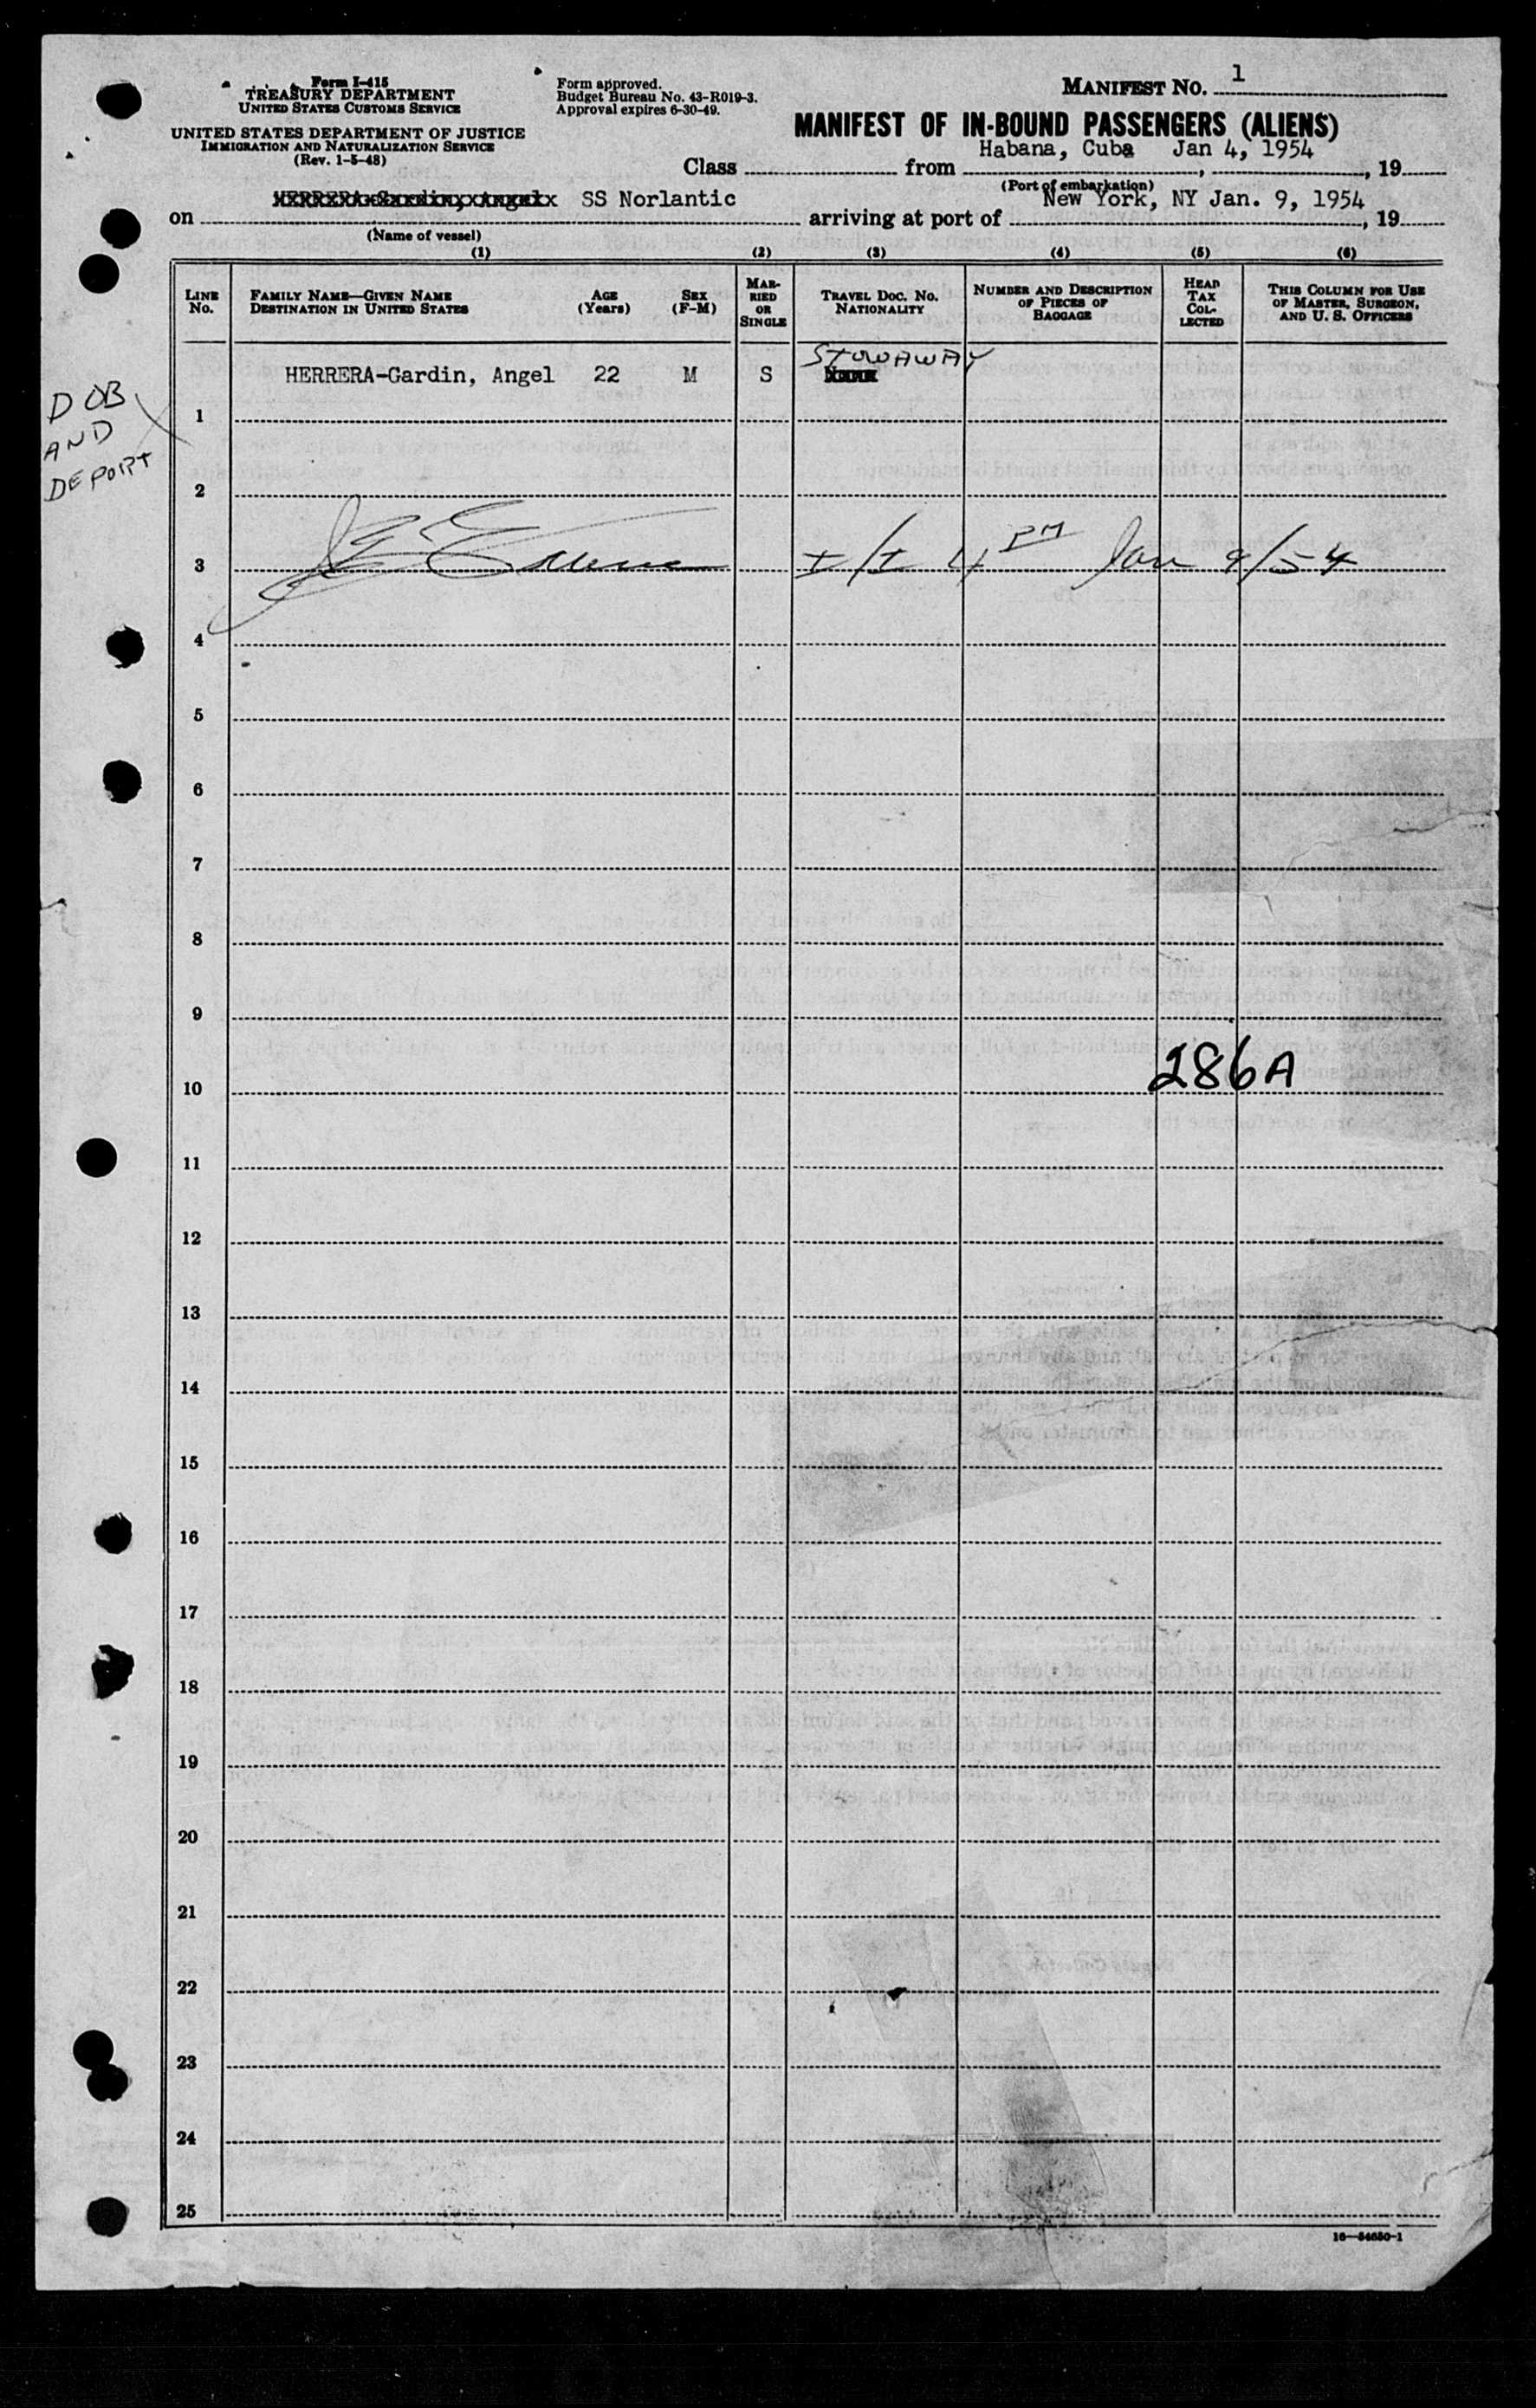 Form I-415
TREASURY DEPARTMENT
UNITED STATES CUSTOMS SERVICE
UNITED STATES DEPARTMENT OF JUSTICE
IMMIGRATION AND NATURALIZATION SERVICE
(Rev. 1-5-48)
Form approved.
Budget Bureau No. 43-R019-3.
Approval expires 6-30-49.
MANIFEST NO. 1
MANIFEST OF IN-BOUND PASSENGERS (ALIENS)
Class from Habana, Cuba Jan 4, 1954, 19
(Port of embarkation)
on SS Norlantic arriving at port of New York, NY Jan. 9, 1954, 19
(Name of vessel)
(1) (2) (3) (4) (5) (6)
LINE No.
FAMILY NAME—GIVEN NAME
DESTINATION IN UNITED STATES
AGE (Years)
SEX (F-M)
MARRIED OR SINGLE
TRAVEL DOC. NO.
NATIONALITY
NUMBER AND DESCRIPTION OF PIECES OF BAGGAGE
HEAD TAX COLLECTED
THIS COLUMN FOR USE OF MASTER, SURGEON, AND U. S. OFFICERS
STOWAWAY
HERRERA-Gardin, Angel 22 M S
DOB
AND
DEPORT
1
2
3 I/I 4 PM Jan 9/54
4
5
6
7
8
9
286A
10
11
12
13
14
15
16
17
18
19
20
21
22
23
24
25
16—54650-1